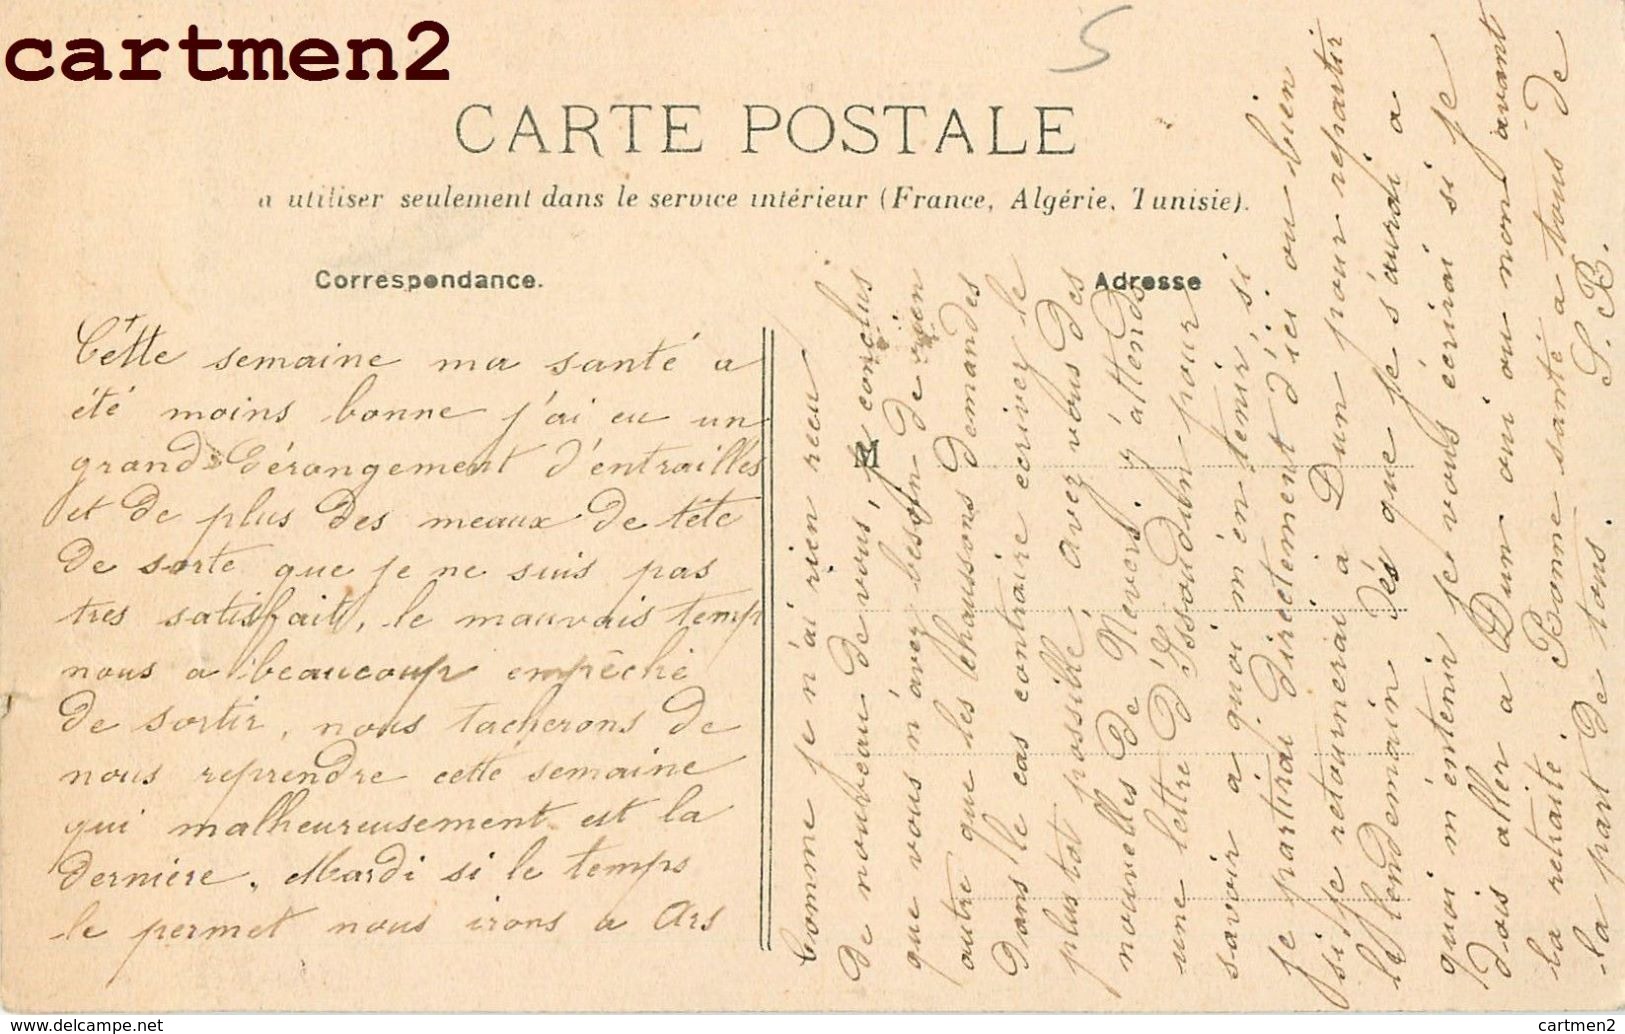 cartmen2
5
CARTE POSTALE
a utiliser seulement dans le service intérieur (France, Algérie, Tunisie).
Correspondance.
Adresse
M
Cette semaine ma santé a
été moins bonne j'ai eu un
grand dérangement d'entrailles
et de plus des meaux de tête
de sorte que je ne suis pas
tres satisfait, le mauvais temp
nous a beaucoup empêché
de sortir, nous tacherons de
nous reprendre cette semaine
qui malheureusement est la
dernière. Mardi si le temps
le permet nous irons a Ars
Comme je n'ai rien recu
de nouveau de vous, je conclus
que vous n'avez besoin de rien
autre que les chaussons demandes
dans le cas contraire ecrivez le
plus tot possible, avez vous des
nouvelles de Nevers. j'attends
une lettre d'Issoudun pour
savoir a quoi m'en tenir, si
je partirai directement d'ici ou bien
si je retournerai a Dun pour repartir
le lendemain dés que je s'aurai a
quoi m'entenir je vous écrirai si je
dois aller a Dun oui ou non avant
la retraite. Bonne santé a tous de
la part de tous. S. B.
www.delcampe.net
cartmen2